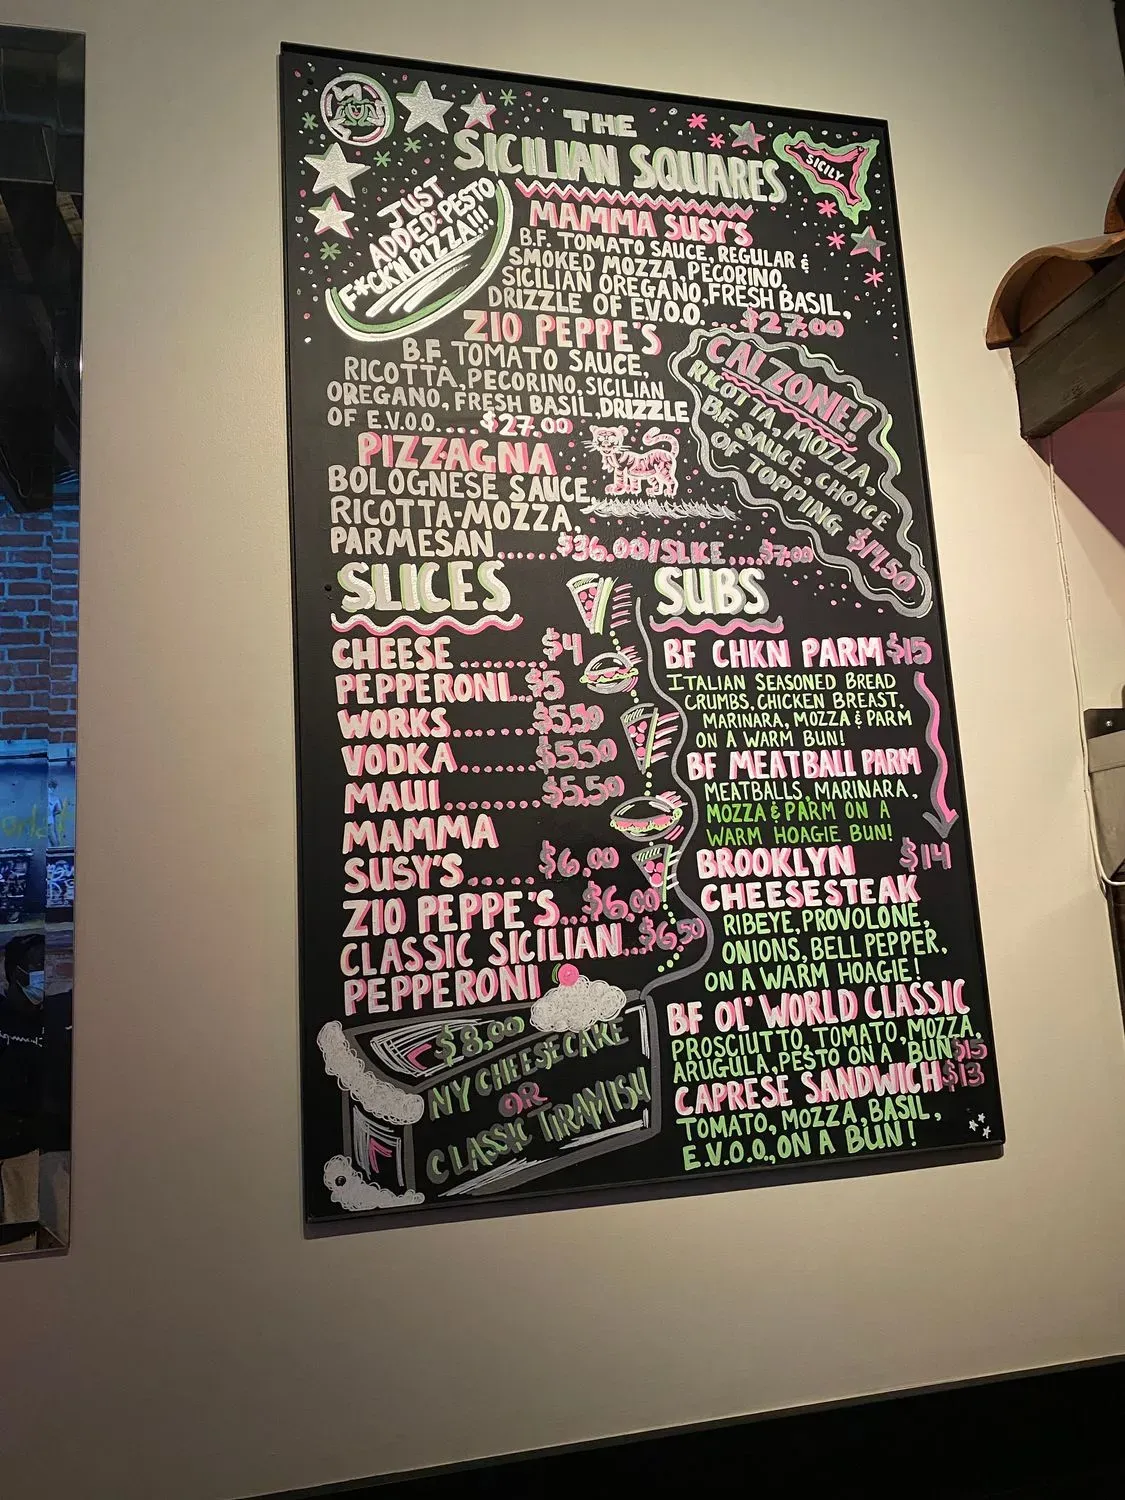 THE
SICILIAN SQUARES
SICILY
JUST
ADDED: PESTO
F*CK'N PIZZA!!!
MAMMA SUSY'S
B.F. TOMATO SAUCE, REGULAR &
SMOKED MOZZA, PECORINO,
SICILIAN OREGANO, FRESH BASIL,
DRIZZLE OF E.V.O.O. ...$27.00
ZIO PEPPE'S
B.F. TOMATO SAUCE,
RICOTTA, PECORINO, SICILIAN
OREGANO, FRESH BASIL, DRIZZLE
OF E.V.O.O.....$27.00
CALZONE!
RICOTTA, MOZZA,
B.F. SAUCE, CHOICE
OF TOPPING $14.50
PIZZAGNA
BOLOGNESE SAUCE,
RICOTTA-MOZZA,
PARMESAN.....$36.00/SLICE...$7.00
SLICES
CHEESE.......$4
PEPPERONI...$5
WORKS.......$5.50
VODKA.......$5.50
MAUI........$5.50
MAMMA
SUSY'S.....$6.00
ZIO PEPPE'S...$6.00
CLASSIC SICILIAN...$6.50
PEPPERONI
$8.00
NY CHEESECAKE
OR
CLASSIC TIRAMISU
SUBS
BF CHKN PARM $15
ITALIAN SEASONED BREAD
CRUMBS, CHICKEN BREAST,
MARINARA, MOZZA & PARM
ON A WARM BUN!
BF MEATBALL PARM
MEATBALLS, MARINARA,
MOZZA & PARM ON A
WARM HOAGIE BUN!
BROOKLYN $14
CHEESESTEAK
RIBEYE, PROVOLONE,
ONIONS, BELL PEPPER,
ON A WARM HOAGIE!
BF OL' WORLD CLASSIC
PROSCIUTTO, TOMATO, MOZZA,
ARUGULA, PESTO ON A BUN $15
CAPRESE SANDWICH $13
TOMATO, MOZZA, BASIL,
E.V.O.O., ON A BUN!